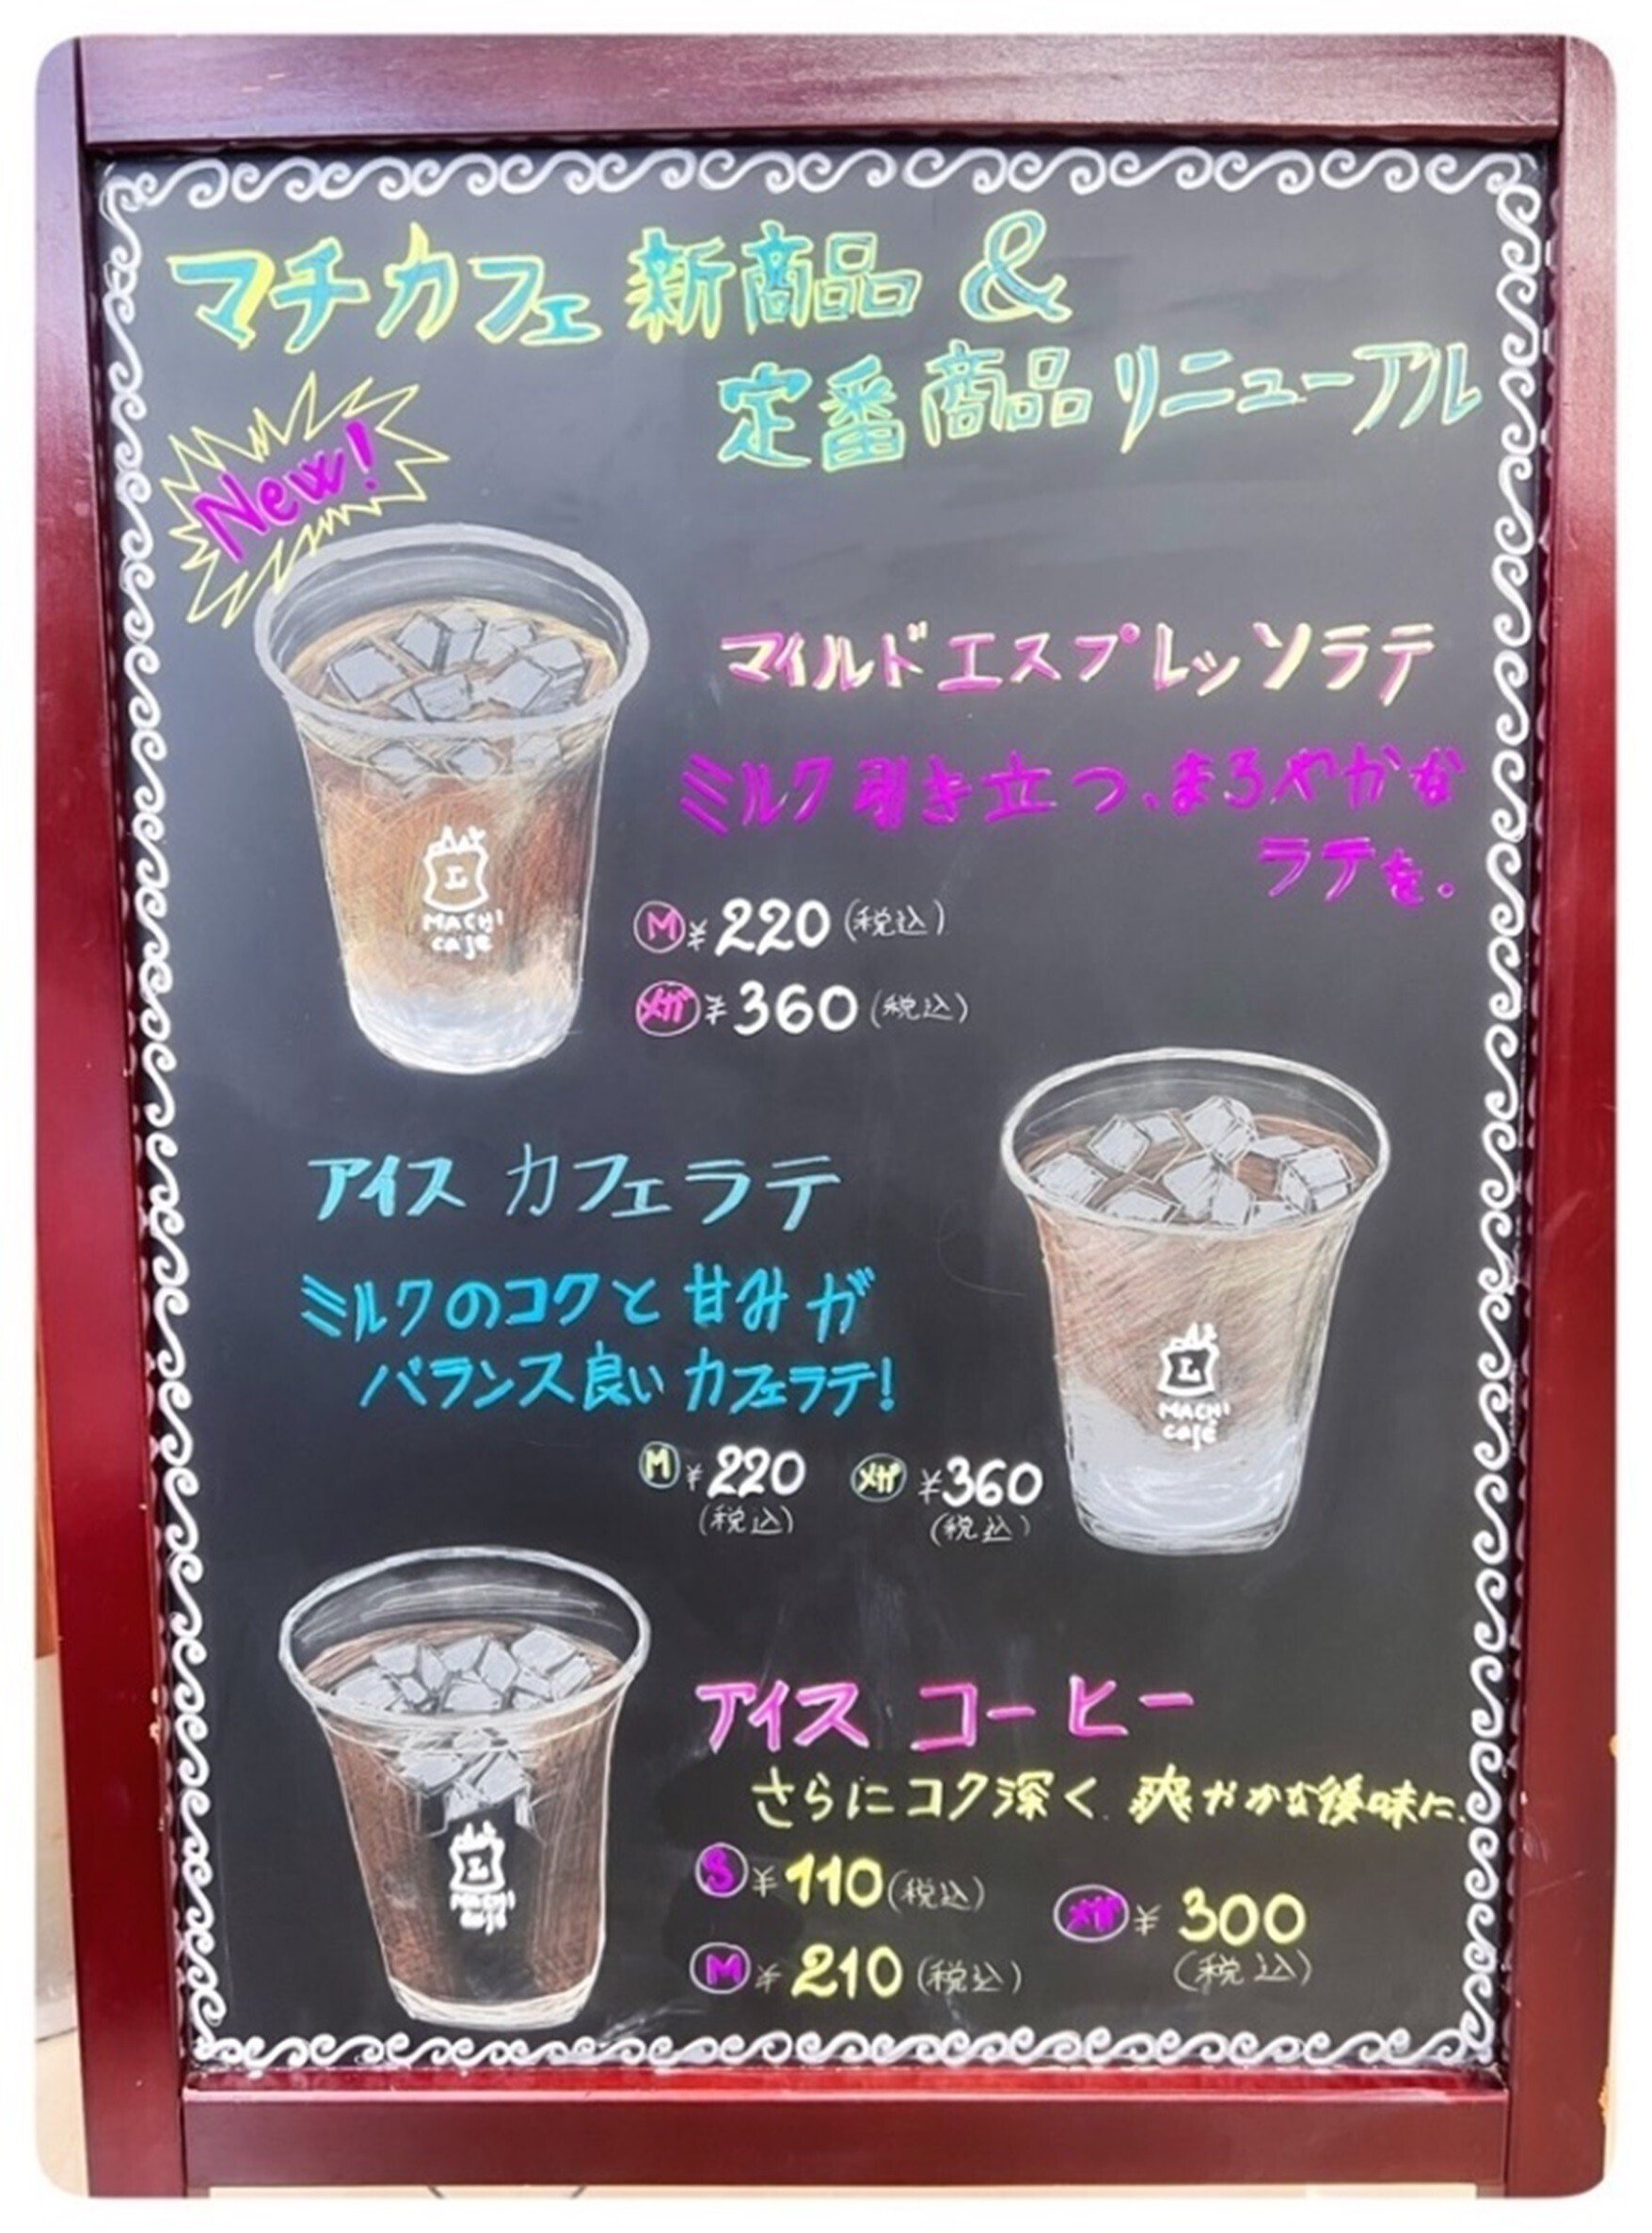 マチカフェ 新商品 &
定番商品リニューアル
New!
マイルドエスプレッソラテ
ミルク引き立つ、まろやかな
ラテを。
M ¥220 (税込)
メガ ¥360 (税込)
L
MACHI
café
アイス カフェラテ
ミルクのコクと甘みが
バランス良い カフェラテ!
M ¥220 メガ ¥360
(税込) (税込)
L
MACHI
café
アイス コーヒー
さらにコク深く、爽やかな後味に。
S ¥110 (税込) メガ ¥300
(税込)
M ¥210 (税込)
L
MACHI
café